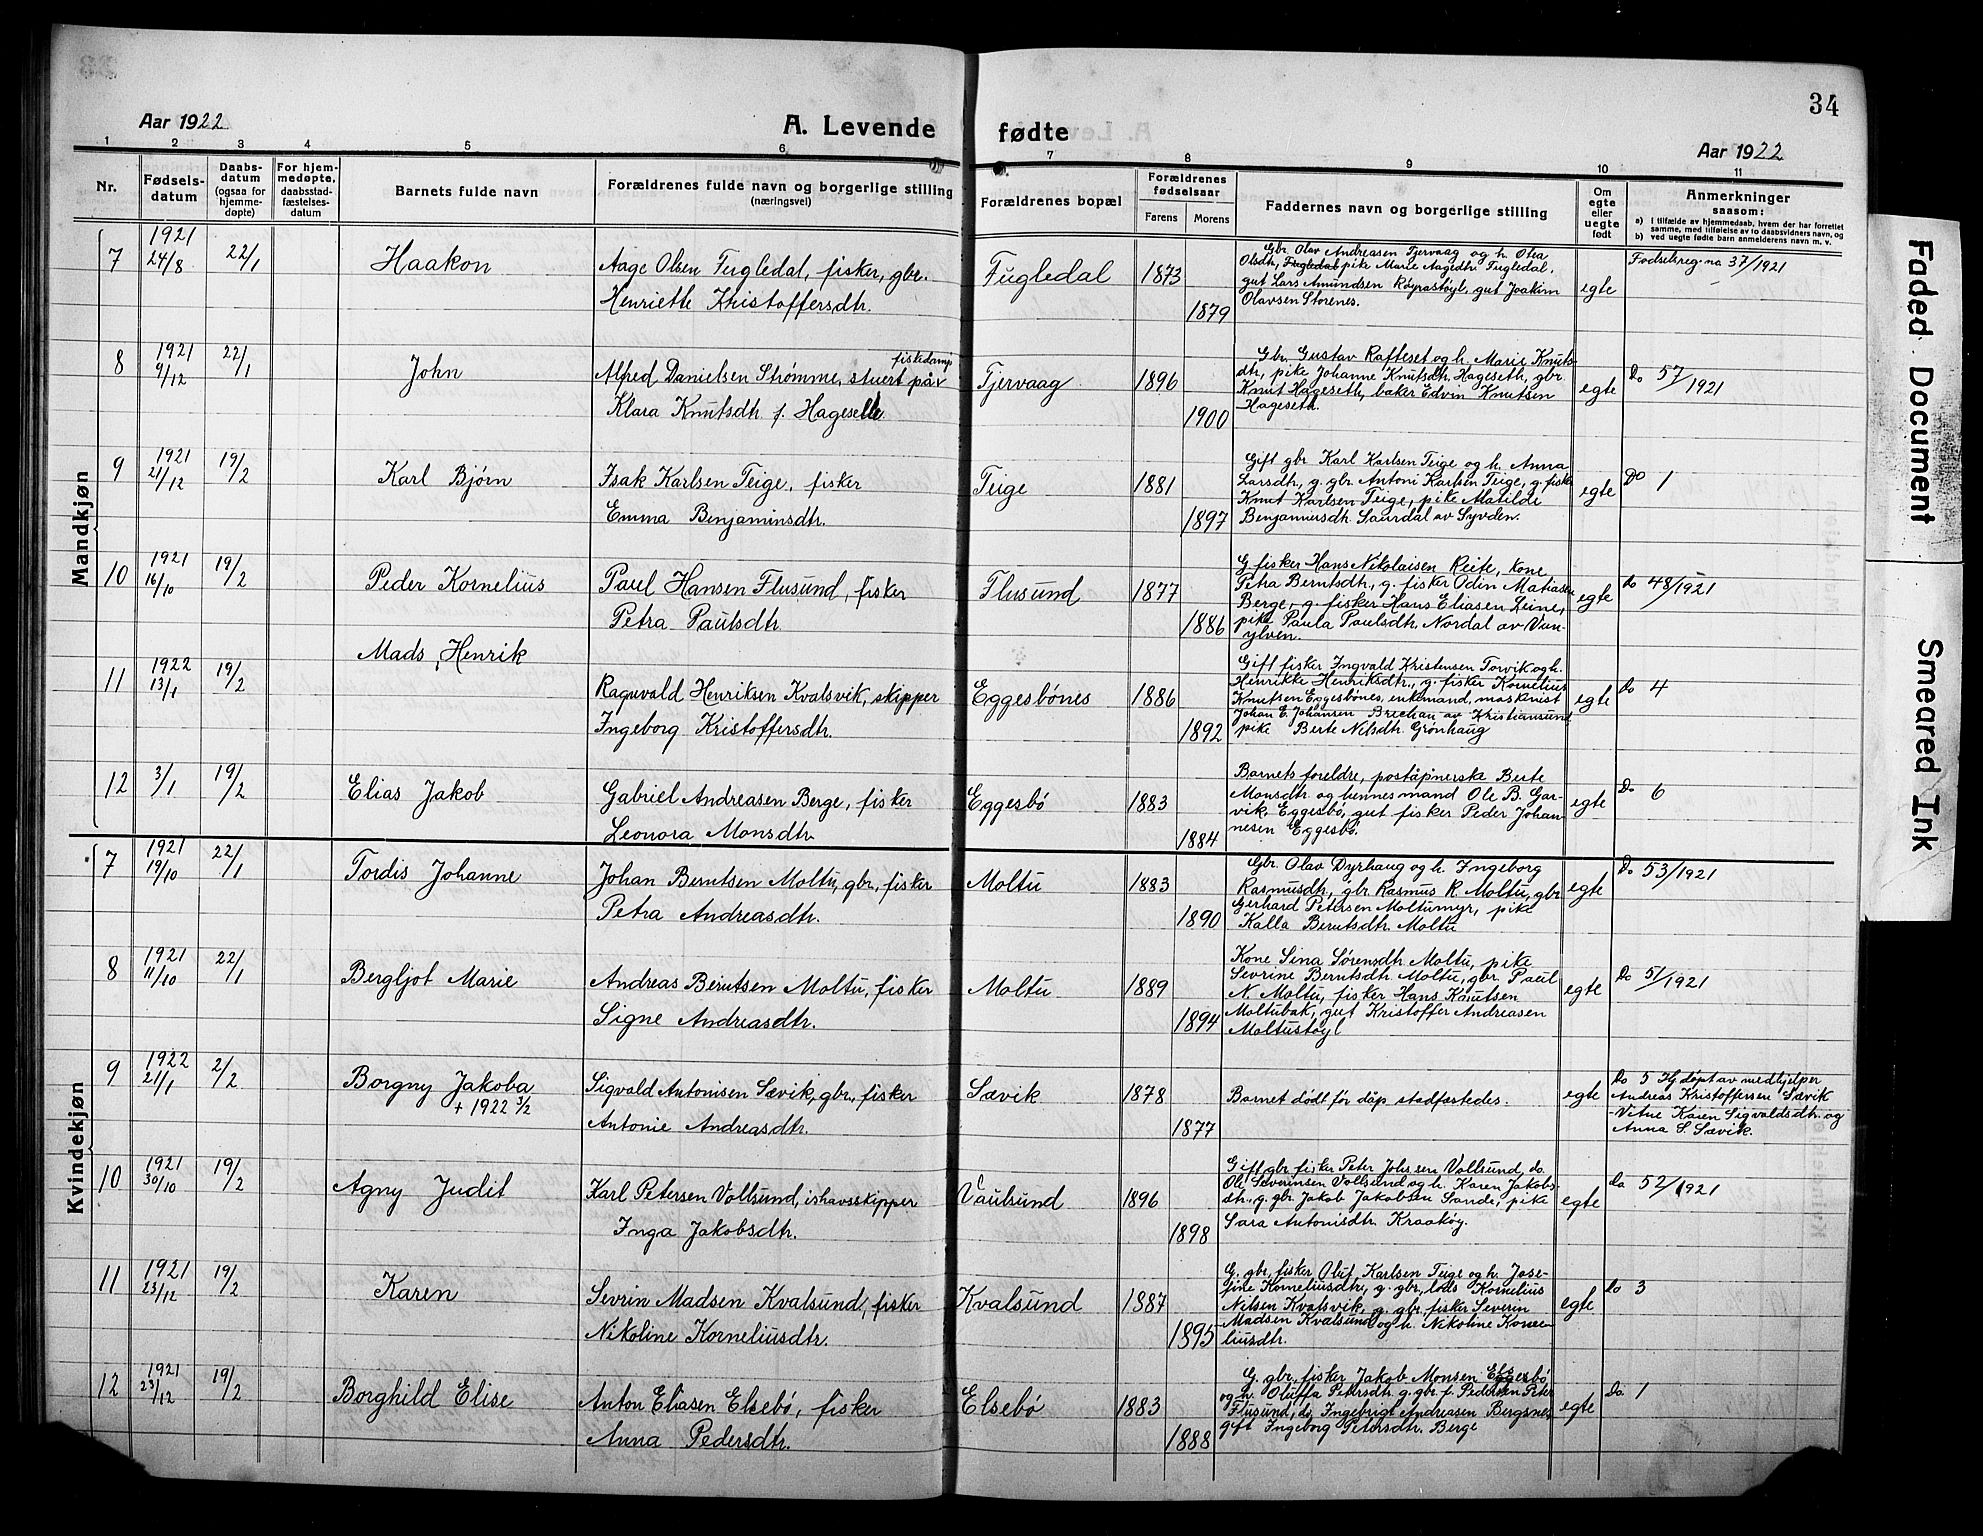 34
Aar 1922
A. Levende fødte
Aar 1922
1 2 3 4 5 6 7 8 9 10 11
Nr.
Fødsels-
datum
Daabs-
datum
(ogsaa for
hjemme-
døpte)
For hjem-
medøpte,
daabsstad-
fæstelses-
datum
Barnets fulde navn
Forældrenes fulde navn og borgerlige stilling
(næringsvei)
Forældrenes bopæl
Forældrenes
fødselsaar
Farens Morens
Faddernes navn og borgerlige stilling
Om
egte
eller
uegte
født
Anmerkninger
saasom:
a) I tilfælde av hjemmedaab, hvem der har forrettet
samme, med tilføielse av to daabsvidners navn, og
b) ved uegte fødte barn anmelderens navn m. v.
Mandkjøn
7 1921 24/8 22/1 Haakon
Aage Olsen Fugledal, fisker, gbr.
Henriette Kristoffersdtr.
Fugledal 1873 1879
Gbr. Olav Andreasen Tjervaag og h. Olea
Olsdtr, Fugledal pike Marie Aagedtr Fugledal,
gut Lars Amundsen Røyrastøyl, gut Joakim
Olavsen Storenes.
egte Fødselsreg. nr 37/1921
8 1921 9/12 22/1 John
Alfred Danielsen Strømme, stuert på fiskedamp
Klara Knutsdtr f. Hageseth
Tjervaag 1896 1900
Gbr. Gustav Rafteset og h. Marie Knuts-
dtr, pike Johanne Knutsdtr. Hageseth, gbr.
Knut Hageseth, baker Edvin Knutsen
Hageseth.
egte Do 57/1921
9 1921 21/12 19/2 Karl Bjørn
Isak Karlsen Teige, fisker
Emma Benjaminsdtr.
Teige 1881 1897
Gift gbr Karl Karlsen Teige og h. Anna
Larsdtr, g. gbr. Antoni Karlsen Teige, g. fisker
Knut Karlsen Teige, pike Matilde
Benjaminsdtr. Saurdal av Syvden.
egte Do 1
10 1921 16/10 19/2 Peder Kornelius
Paul Hansen Flusund, fisker
Petra Paulsdtr
Flusund 1877 1886
G. fisker Hans Nikolaisen Reite, kone
Petra Berntsdtr, g. fisker Odin Matiasen
Berge, g. fisker Hans Eliasen Leine,
pike Paula Paulsdtr. Nordal av Van-
ylven.
egte do 48/1921
11 1922 13/1 19/2 Mads Henrik
Ragnvald Henriksen Kvalsvik, skipper
Ingeborg Kristoffersdtr.
Eggesbønes 1886 1892
Gift fisker Ingvald Kristensen Torvik og h.
Henrikke Henriksdtr., g. fisker Kornelius
Knutsen Eggesbønes, enkemand, maskinist
Johan E. Johansen Brechan av Kristiansund
pike Berte Nilsdtr. Grønhaug
egte do 4
12 3/1 19/2 Elias Jakob
Gabriel Andreasen Berge, fisker
Leonora Monsdtr
Eggesbø 1883 1884
Barnets foreldre, poståpnerske Berte
Monsdtr og hennes mand Ole B. Gar-
vik, Eggesbø, gut fisker Peder Johan-
nesen Eggesbø.
egte Do 6
Kvindekjøn
7 1921 19/10 22/1 Tordis Johanne
Johan Berntsen Moltu, gbr, fisker
Petra Andreasdtr.
Moltu 1883 1890
Gbr. Olav Dyrhaug og h. Ingeborg
Rasmusdtr, gbr. Rasmus R. Moltu, gbr
Gerhard Petersen Moltumyr, pike
Kalla Berntsdtr. Moltu
egte Do 53/1921
8 1921 11/10 22/1 Bergljot Marie
Andreas Berntsen Moltu, fisker
Signe Andreasdtr.
Moltu 1889 1894
Kone Sina Sørensdtr Moltu, pike
Sevrine Berntsdtr. Moltu, gbr. Paul
N. Moltu, fisker Hans Knutsen
Moltubak, gut Kristoffer Andreasen
Moltustøyl
egte Do 51/1921
9 1922 21/1 2/2 Borgny Jakoba
+ 1922 3/2
Sigvald Antonisen Sævik, gbr, fisker
Antonie Andreasdtr.
Sævik 1878 1877
Barnet dødt før dåp stadfæstedes.
egte Do 5 Hj. døpt av medhjelper
Andreas Kristoffersen Sævik
Vitne Karen Sigvaldsdtr. og
Anna S. Sævik.
10 1921 30/10 19/2 Agny Judit
Karl Petersen Vollsund, ishavsskipper
Inga Jakobsdtr.
Vaulsund 1896 1898
Gift gbr fisker Peter Johs.sen Vollsund, do.
Ole Severinsen Vollsund og h. Karen Jakobs-
dtr., g. gbr. Jakob Jakobsen Sande, pike
Sara Antonisdtr. Kraakøy.
egte do 52/1921
11 1921 23/12 19/2 Karen
Sevrin Madsen Kvalsund, fisker
Nikoline Korneliusdtr.
Kvalsund 1887 1895
G. gbr, fisker Oluf Karlsen Teige og h. Jose-
fine Korneliusdtr, g. gbr, lods Kornelius
Nilsen Kvalsvik, g. gbr, fisker Severin
Madsen Kvalsund og h. Nikoline Korne-
liusdtr.
egte do 3
12 1921 23/12 19/2 Borghild Elise
Anton Eliasen Elsebø, fisker
Anna Pedersdtr.
Elsebø 1883 1888
G. gbr, fisker Jakob Monsen Eggesbø
og h. Oluffa Petersdtr g. gbr. f. Pedersen Peter
Flusund, do Ingebrigt Andreasen Bergsnes,
gift Ingeborg Petersdtr. Berge
egte Do 1
Faded Document
Smeared Ink